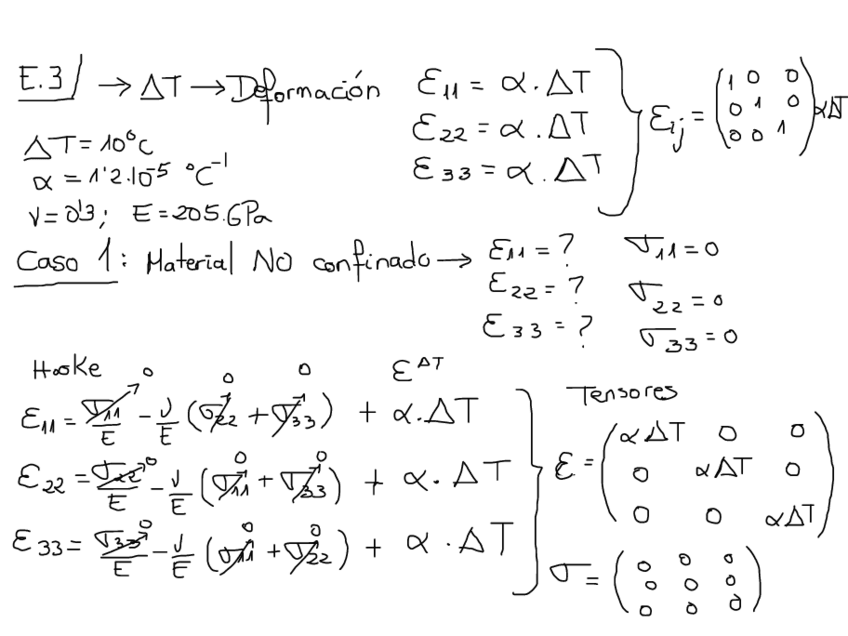 E.3/ → ΔT → Deformación
ε11 = α. ΔT
ε22 = α. ΔT
ε33 = α. ΔT
εij = (1 0 0
0 1 0
0 0 1) αΔT
ΔT = 10°C
α = 1'2.10^-5 °C^-1
ν = 0'3; E = 205.GPa
Caso 1: Material NO confinado →
ε11 = ? σ11 = 0
ε22 = ? σ22 = 0
ε33 = ? σ33 = 0
Hooke ε^ΔT
ε11 = σ11/E - ν/E (σ22 + σ33) + α.ΔT
0 0 0
ε22 = σ22/E - ν/E (σ11 + σ33) + α. ΔT
0 0 0
ε33 = σ33/E - ν/E (σ11 + σ22) + α . ΔT
0 0 0
Tensores
ε = (αΔT 0 0
0 αΔT 0
0 0 αΔT)
σ = (0 0 0
0 0 0
0 0 0)